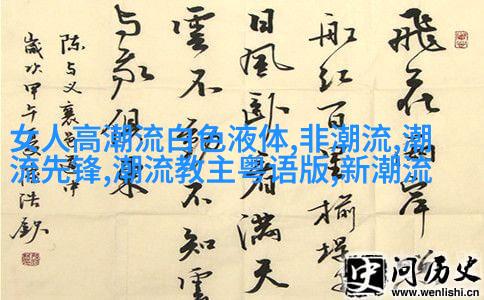 飛花兩岸
船紅百里榆堤
日風卧看滿天
雲不動不知雲
与我俱東
陈与义襄邑道中
歲次甲午
女人高潮流白色液体,非潮流,潮
流先锋,潮流教主粤语版,新潮流
史问历史
www.wenlishi.cn